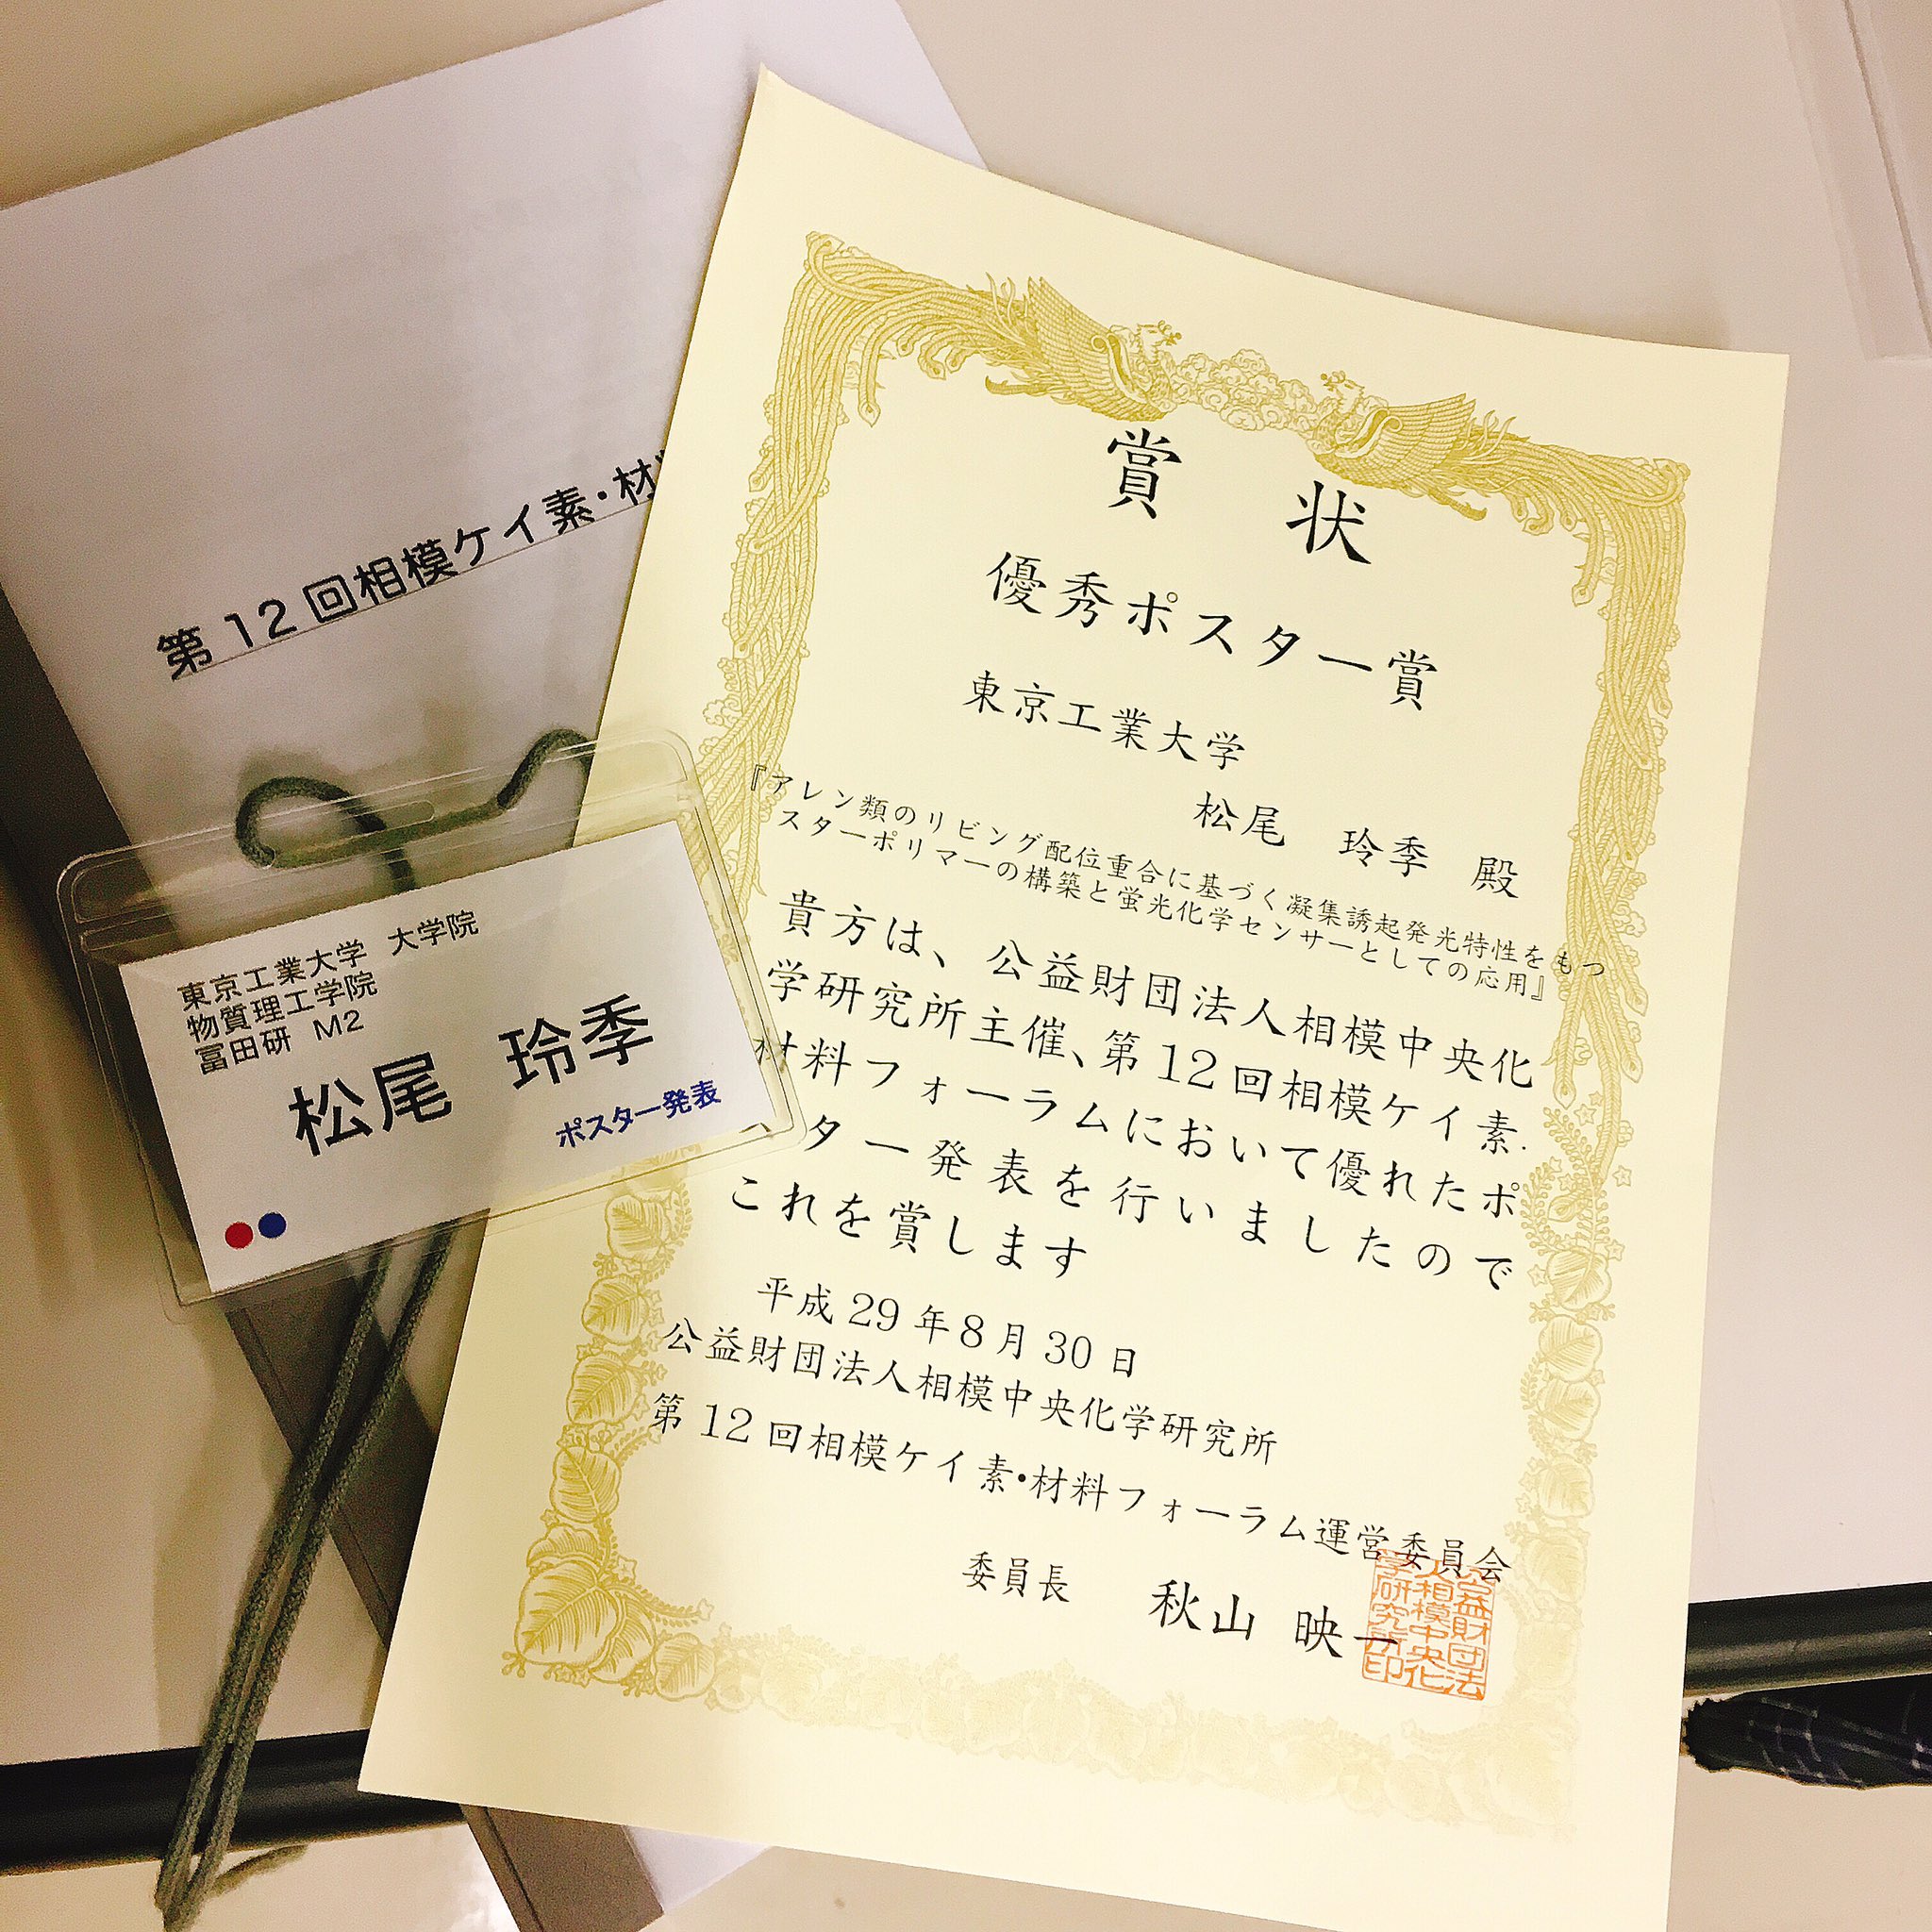 第12回相模ケイ素・材
東京工業大学 大学院
物質理工学院
冨田研 M2
松尾 玲季
ポスター発表
賞 状
優秀ポスター賞
東京工業大学
松尾 玲季 殿
『アレン類のリビング配位重合に基づく凝集誘起発光特性をもつ
スターポリマーの構築と蛍光化学センサーとしての応用』
貴方は、公益財団法人相模中央化
学研究所主催、第12回相模ケイ素・
材料フォーラムにおいて優れたポ
ター発表を行いましたので
これを賞します
平成29年8月30日
公益財団法人相模中央化学研究所
第12回相模ケイ素・材料フォーラム運営委員会
委員長 秋山 映一
公益財団法
人相模中央化
学研究所印